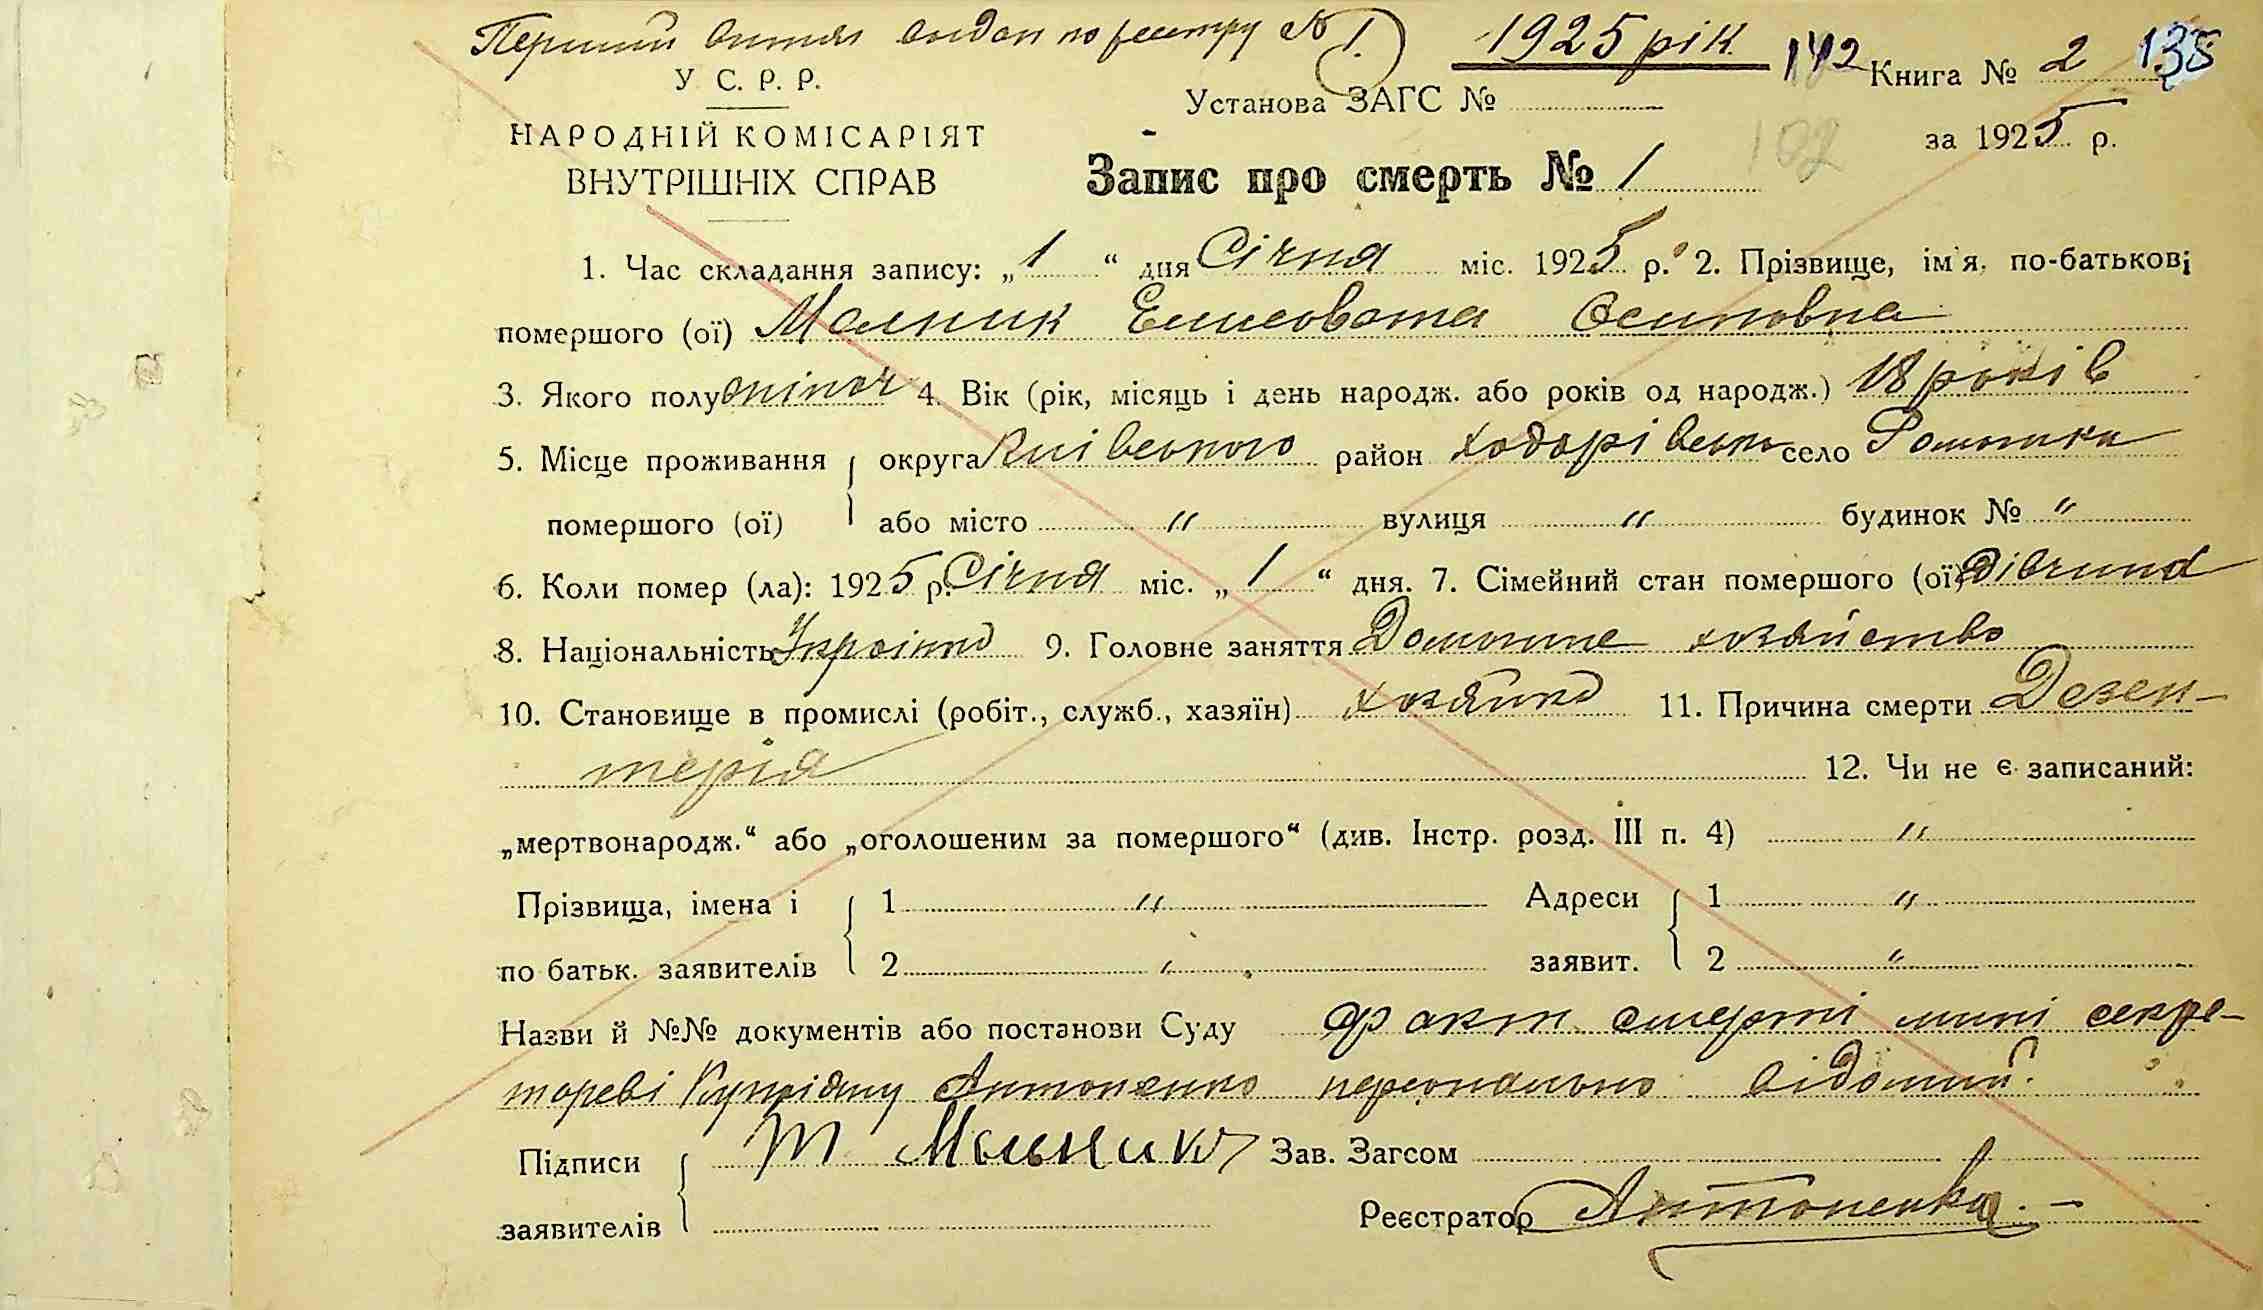 Перший витяг видан по реестру № 1.
1925 рік
142
Книга № 2
138
У. С. Р. Р.
Установа ЗАГС №
НАРОДНІЙ КОМІСАРІЯТ
102
за 1925 р.
ВНУТРІШНІХ СПРАВ
Запис про смерть № 1
1. Час складання запису: „1“ дня Січня міс. 1925 р. 2. Прізвище, ім'я, по-батькові
помершого (ої) Мельник Елисовата Осиповна
3. Якого полу жіноч 4. Вік (рік, місяць і день народж. або років од народж.) 18 років
5. Місце проживання округа Київського район Ходорівсько село Ромашки
помершого (ої) або місто " вулиця " будинок № "
6. Коли помер (ла): 1925 р. Січня міс. „1“ дня. 7. Сімейний стан помершого (ої) Дівчина
8. Національність Украінка 9. Головне заняття Домашне хозяйство
10. Становище в промислі (робіт., служб., хазяїн) хозяйка 11. Причина смерти Дезен-
терія 12. Чи не є записаний:
„мертвонародж.“ або „оголошеним за помершого“ (див. Інстр. розд. III п. 4) "
Прізвища, імена і 1 " Адреси 1 "
по батьк. заявителів 2 " заявит. 2 "
Назви й №№ документів або постанови Суду факт смерті мині секре-
тареві Купріяну Антоненко персонально відомий.
Підписи Т Мельник Зав. Загсом
заявителів Реєстратор Антоненко.